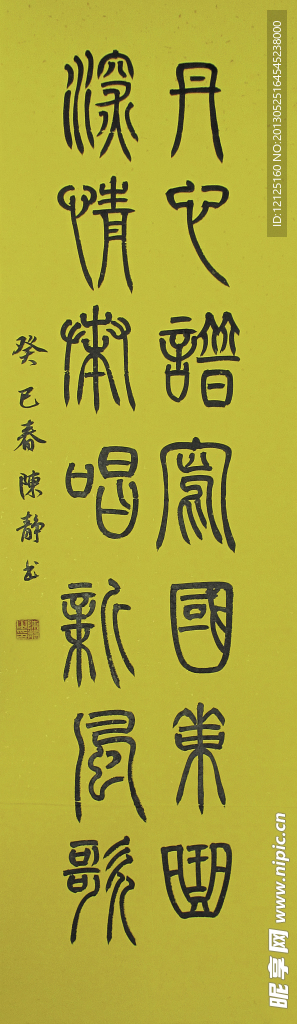 丹心譜寫國
深情唱新風歌
癸巳春陳靜书
ID:12125160 NO:20130525164545238000
昵享网 www.nipic.cn